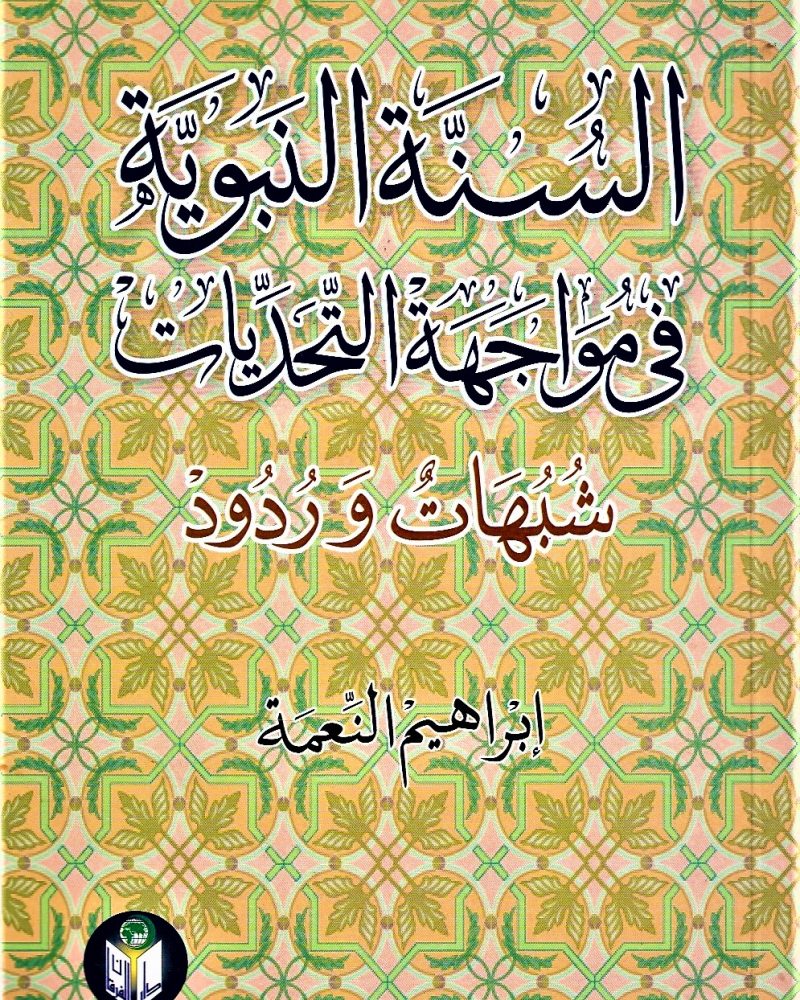 السُنَّة النَبَويَّة
فى مُوَاجَهَة التَّحَدِّيات
شُبُهَاتٌ وَرُدُودْ
إبْراهيم النِّعمَة